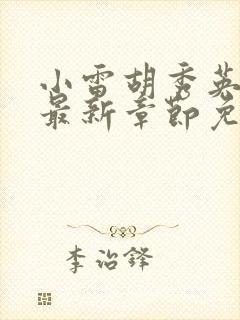 小雷胡秀英
最新章节免
李治铎